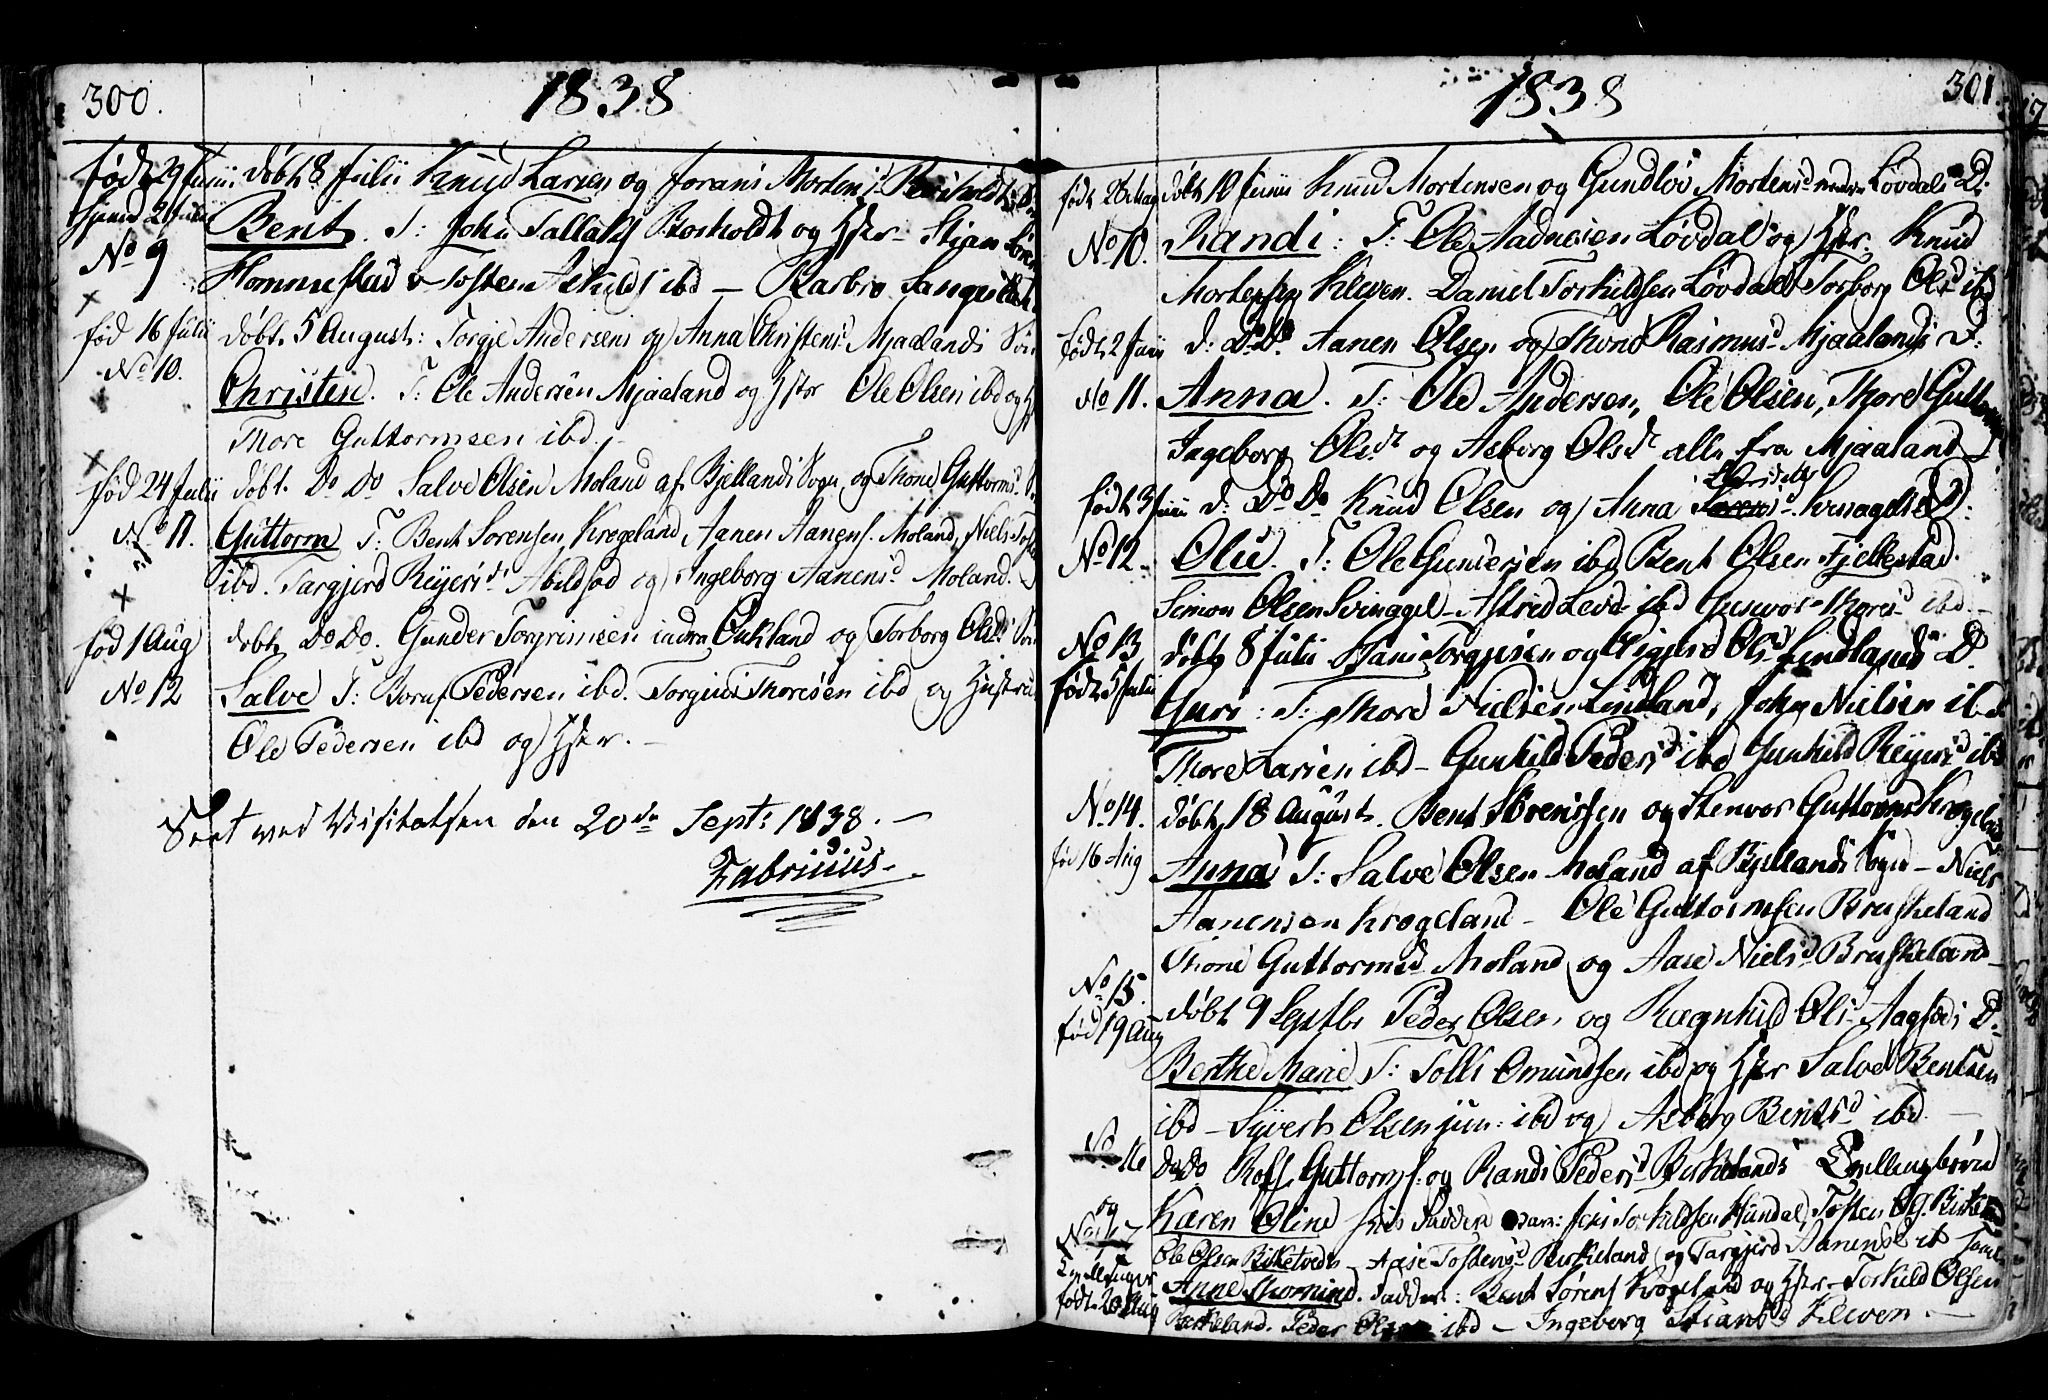 300.
1838
fød 29 Junii døbt 8 Julii Knud Larsen og Joran Mortensd
hjemd 2 Julii Bent. T: John Tallaks Bosholdt og Hstr - Stian
No 9 Hommestad Tosten Askilds ibd - Barbro
fød 16 Julii døbt 5 August: Torgje Andersens og Anna Christens Mjaalands Søn
No 10. Christen. T: Ole Andersen Mjaaland og Hstr Ole Olsen ibd og
Thore Guttormsen ibd. -
fød 24 Julii døbt. Do Do Salve Olsen Moland af Bjellands Sogn og Thone Guttorms
No 11. Guttorm T: Bent Sørensen Krogeland, Aanen Aanens. Moland, Niels
ibd. Targjerd Reyersd Abildsød og Ingeborg Aanensd Moland.
fød 1 Aug døbt Do Do. Gunder Torgrimsen indre Øukland og Torborg Olsd Søn
No 12 Salve T: Pedersen ibd. Thoresen ibd og Hustrue
Ole Pedersen ibd og Hstr. -
Seet ved Visitatsen den 20de Septr 1838. -
Fabricius -
1838
301.
født døbt 10 Junii Knud Mortensen og Gundlov Mortensd nedre Løvdals D.
No 10. Randi: T: Ole Aadnesen Løvdal og Hstr. Knud
Mortensen Kleven. Daniel Torkildsen Løvdal Torborg Olsd ibd
født 2 Junii d: Do Do. Aanen Olsen og Thone Rasmusd Mjaalands D:
No 11. Anna. T: Ole Andersen, Ole Olsen, Thore
Ingeborg Olsdr og Asborg Olsdr alle fra Mjaaland
født 3 Junii d: Do Do Knud Olsen og Anna D:
No 12. Olu. T: Ole Gundersen ibd Bent Olsen Fjellestad.
Simon Olsen Svinagel - Astred ibd Gunvor Thoresd ibd. -
No 13 døbt 8 Julii Hans Torgjusen og Olsd Lindlands D.
født 5 Julii Guro: T: Thore Nielsen Lindland, John Nielsen ibd
Thore Larsen ibd - Gunhild Pedersd ibd Gunhild Reyersd ibd
No 14. døbt 18 August. Bent Sørenssen og Stenvor Guttormsd
fød 16 Aug Anna T: Salve Olsen Moland af Bjellands Sogn - Niels
Aanensen Krogeland - Ole Guttormsen Bruskeland
Thone Guttormsd Moland og Aase Nielsd Bruskeland -
No 15. døbt 9 Septbr Peder Olsen og Ragnhild Ols Aagsæds D.
fød 19 Aug Berthe Marie T: Tolls Omundsen ibd og Hstr Salve Bentsen
ibd - Syvert Olsen jun: ibd og Asborg Bentsd ibd. -
No 16 Do Do Rolf Guttorms. og Randi Pedersd Birkelands Tvillingbørn
og Karen Oline hvis Faddere vare: Jens Torkildsen Hundal, Tosten
No 17 Ole Olsen Birketvedt - Aase Tostensd Birkeland og Targjerd Aanensd
Tvillinger Anne Thomine. Fadder: Bent Sørens Krogeland og Hstr - Torkild Olsen
født 20 Aug Birkeland. Peder Olsen ibd - Ingeborg Stiansd Kleven. -